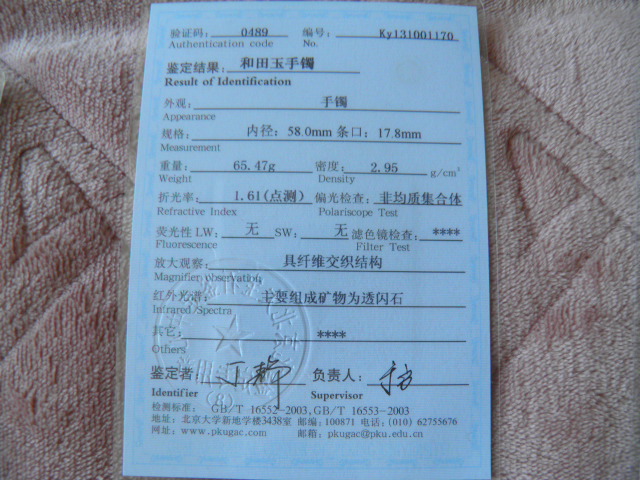 验证码: 0489 编号: Ky131001170
Authentication code No.
鉴定结果: 和田玉手镯
Result of Identification
外观: 手镯
Appearance
规格: 内径: 58.0mm 条口: 17.8mm
Measurement
重量: 65.47g 密度: 2.95 g/cm³
Weight Density
折光率: 1.61(点测) 偏光检查: 非均质集合体
Refractive Index Polariscope Test
荧光性 LW: 无 SW: 无 滤色镜检查: ****
Fluorescence Filter Test
放大观察: 具纤维交织结构
Magnifier observation
红外光谱: 主要组成矿物为透闪石
Infrared Spectra
其它: ****
Others
鉴定者: 负责人:
Identifier Supervisor
检测标准: GB/T 16552-2003,GB/T 16553-2003
地址: 北京大学新地学楼3438室 邮编: 100871 电话: (010) 62755676
网址: www.pkugac.com 邮箱: pkugac@pku.edu.cn